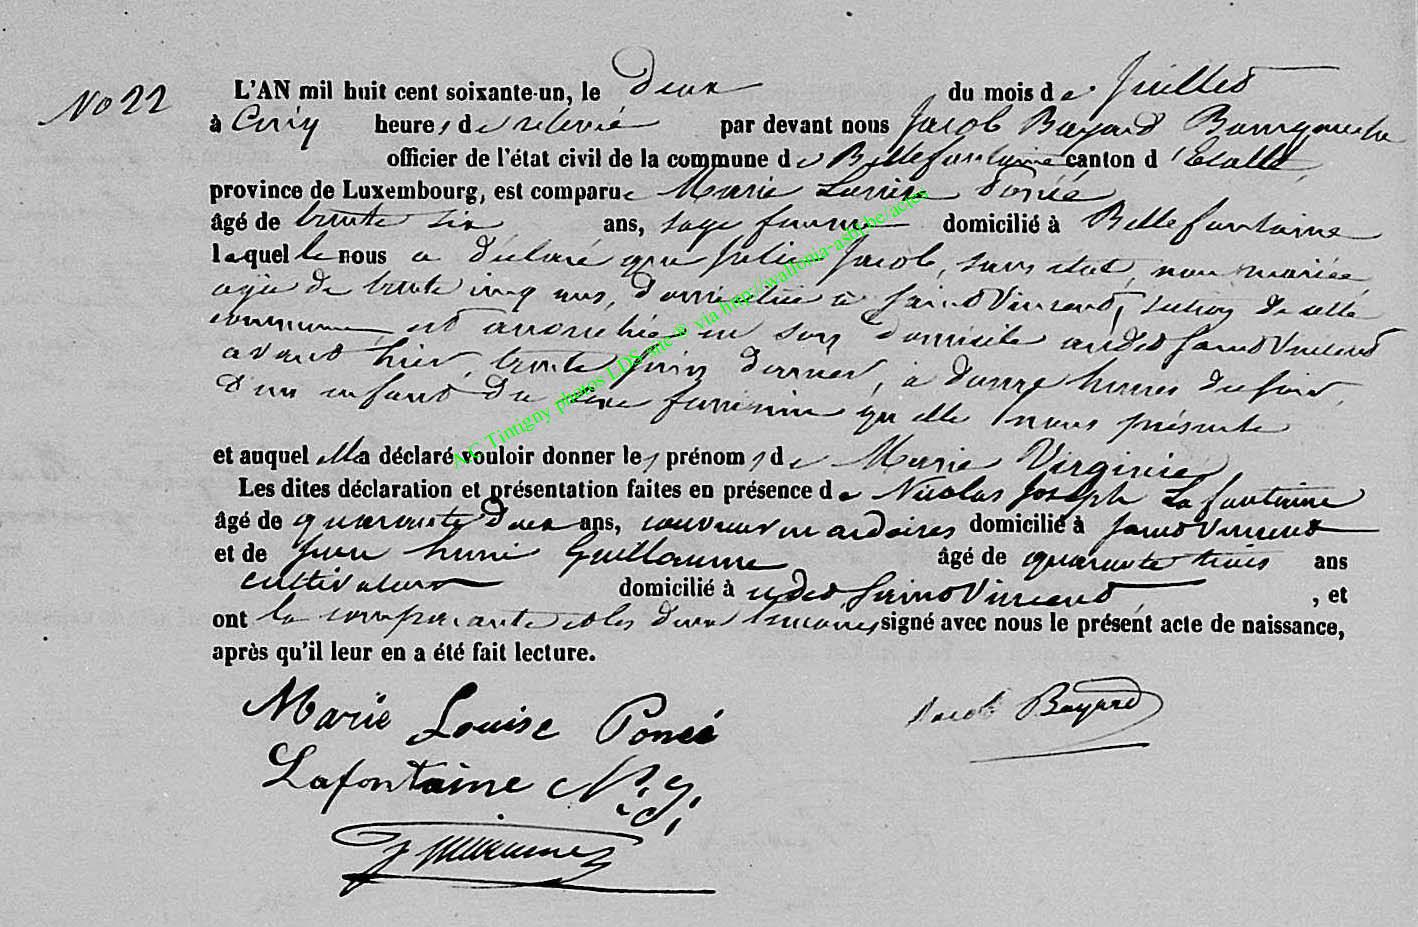 No 22
L'AN mil huit cent soixante-un, le deux du mois de Juillet
à Cinq heures de relevée par devant nous Jacob Bayard Bourgmestre
officier de l'état civil de la commune de Bellefontaine canton d'Etalle,
province de Luxembourg, est comparue Marie Louise Poncé
âgé de trente six ans, sage femme domicilié à Bellefontaine
laquelle nous a déclaré que Julie Jacob, sans état, non mariée
agée de trente cinq ans, domiciliée à Saint Vincent, section de cette
commune est accouchée en son domicile audit Saint Vincent
avant hier, trente Juin dernier, à douze heures du soir,
d'un enfant du sexe feminin qu'elle nous présente
et auquel elle a déclaré vouloir donner les prénoms de Marie Virginie,
Les dites déclaration et présentation faites en présence de Nicolas Joseph Lafontaine
âgé de quarante deux ans, couvreur en ardoises domicilié à Saint Vincent
et de Jean henri Guillaume âgé de quarante trois ans
cultivateur domicilié à udit Saint Vincent, , et
ont la comparante et les deux témoins signé avec nous le présent acte de naissance,
après qu'il leur en a été fait lecture.
Marie Louise Poncé
Jacob Bayard
Lafontaine N. J.
J guillaume
A.C. Tintigny photos LDS site © via http://wallonia-asbl.be/actes